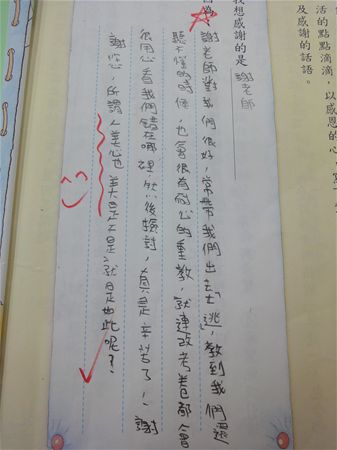 活的點點滴滴，以感恩的心，
及感謝的話語。
我想感謝的是 謝老師
謝老師對我們很好，常帶我們出去「逃」，教到我們還
聽不懂的時候，也會很有耐心的重教，就連改考卷都會
很用心看我們錯在哪裡，然後檢討，真是辛苦了！謝
謝您，所謂人美心也美是不是就是如此呢？